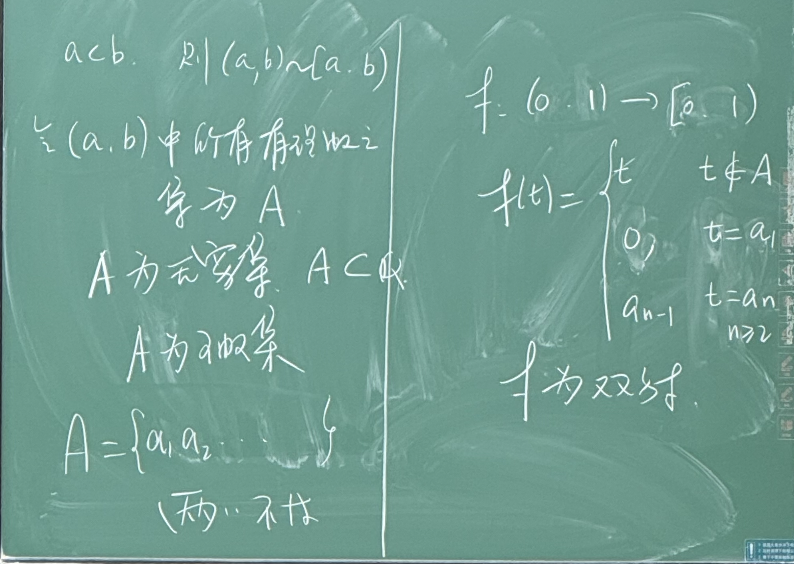 a<b. 则 (a,b)~[a.b)
令(a,b)中所有有理数之
集为A
A为无穷集. A⊂Q.
A为可数集
A={a₁,a₂⋯ }
(两两不以
f: (0.1)→[0.1)
f(t)={t t∉A
0, t=a₁
aₙ₋₁ t=aₙ
n≥2
f为双射.